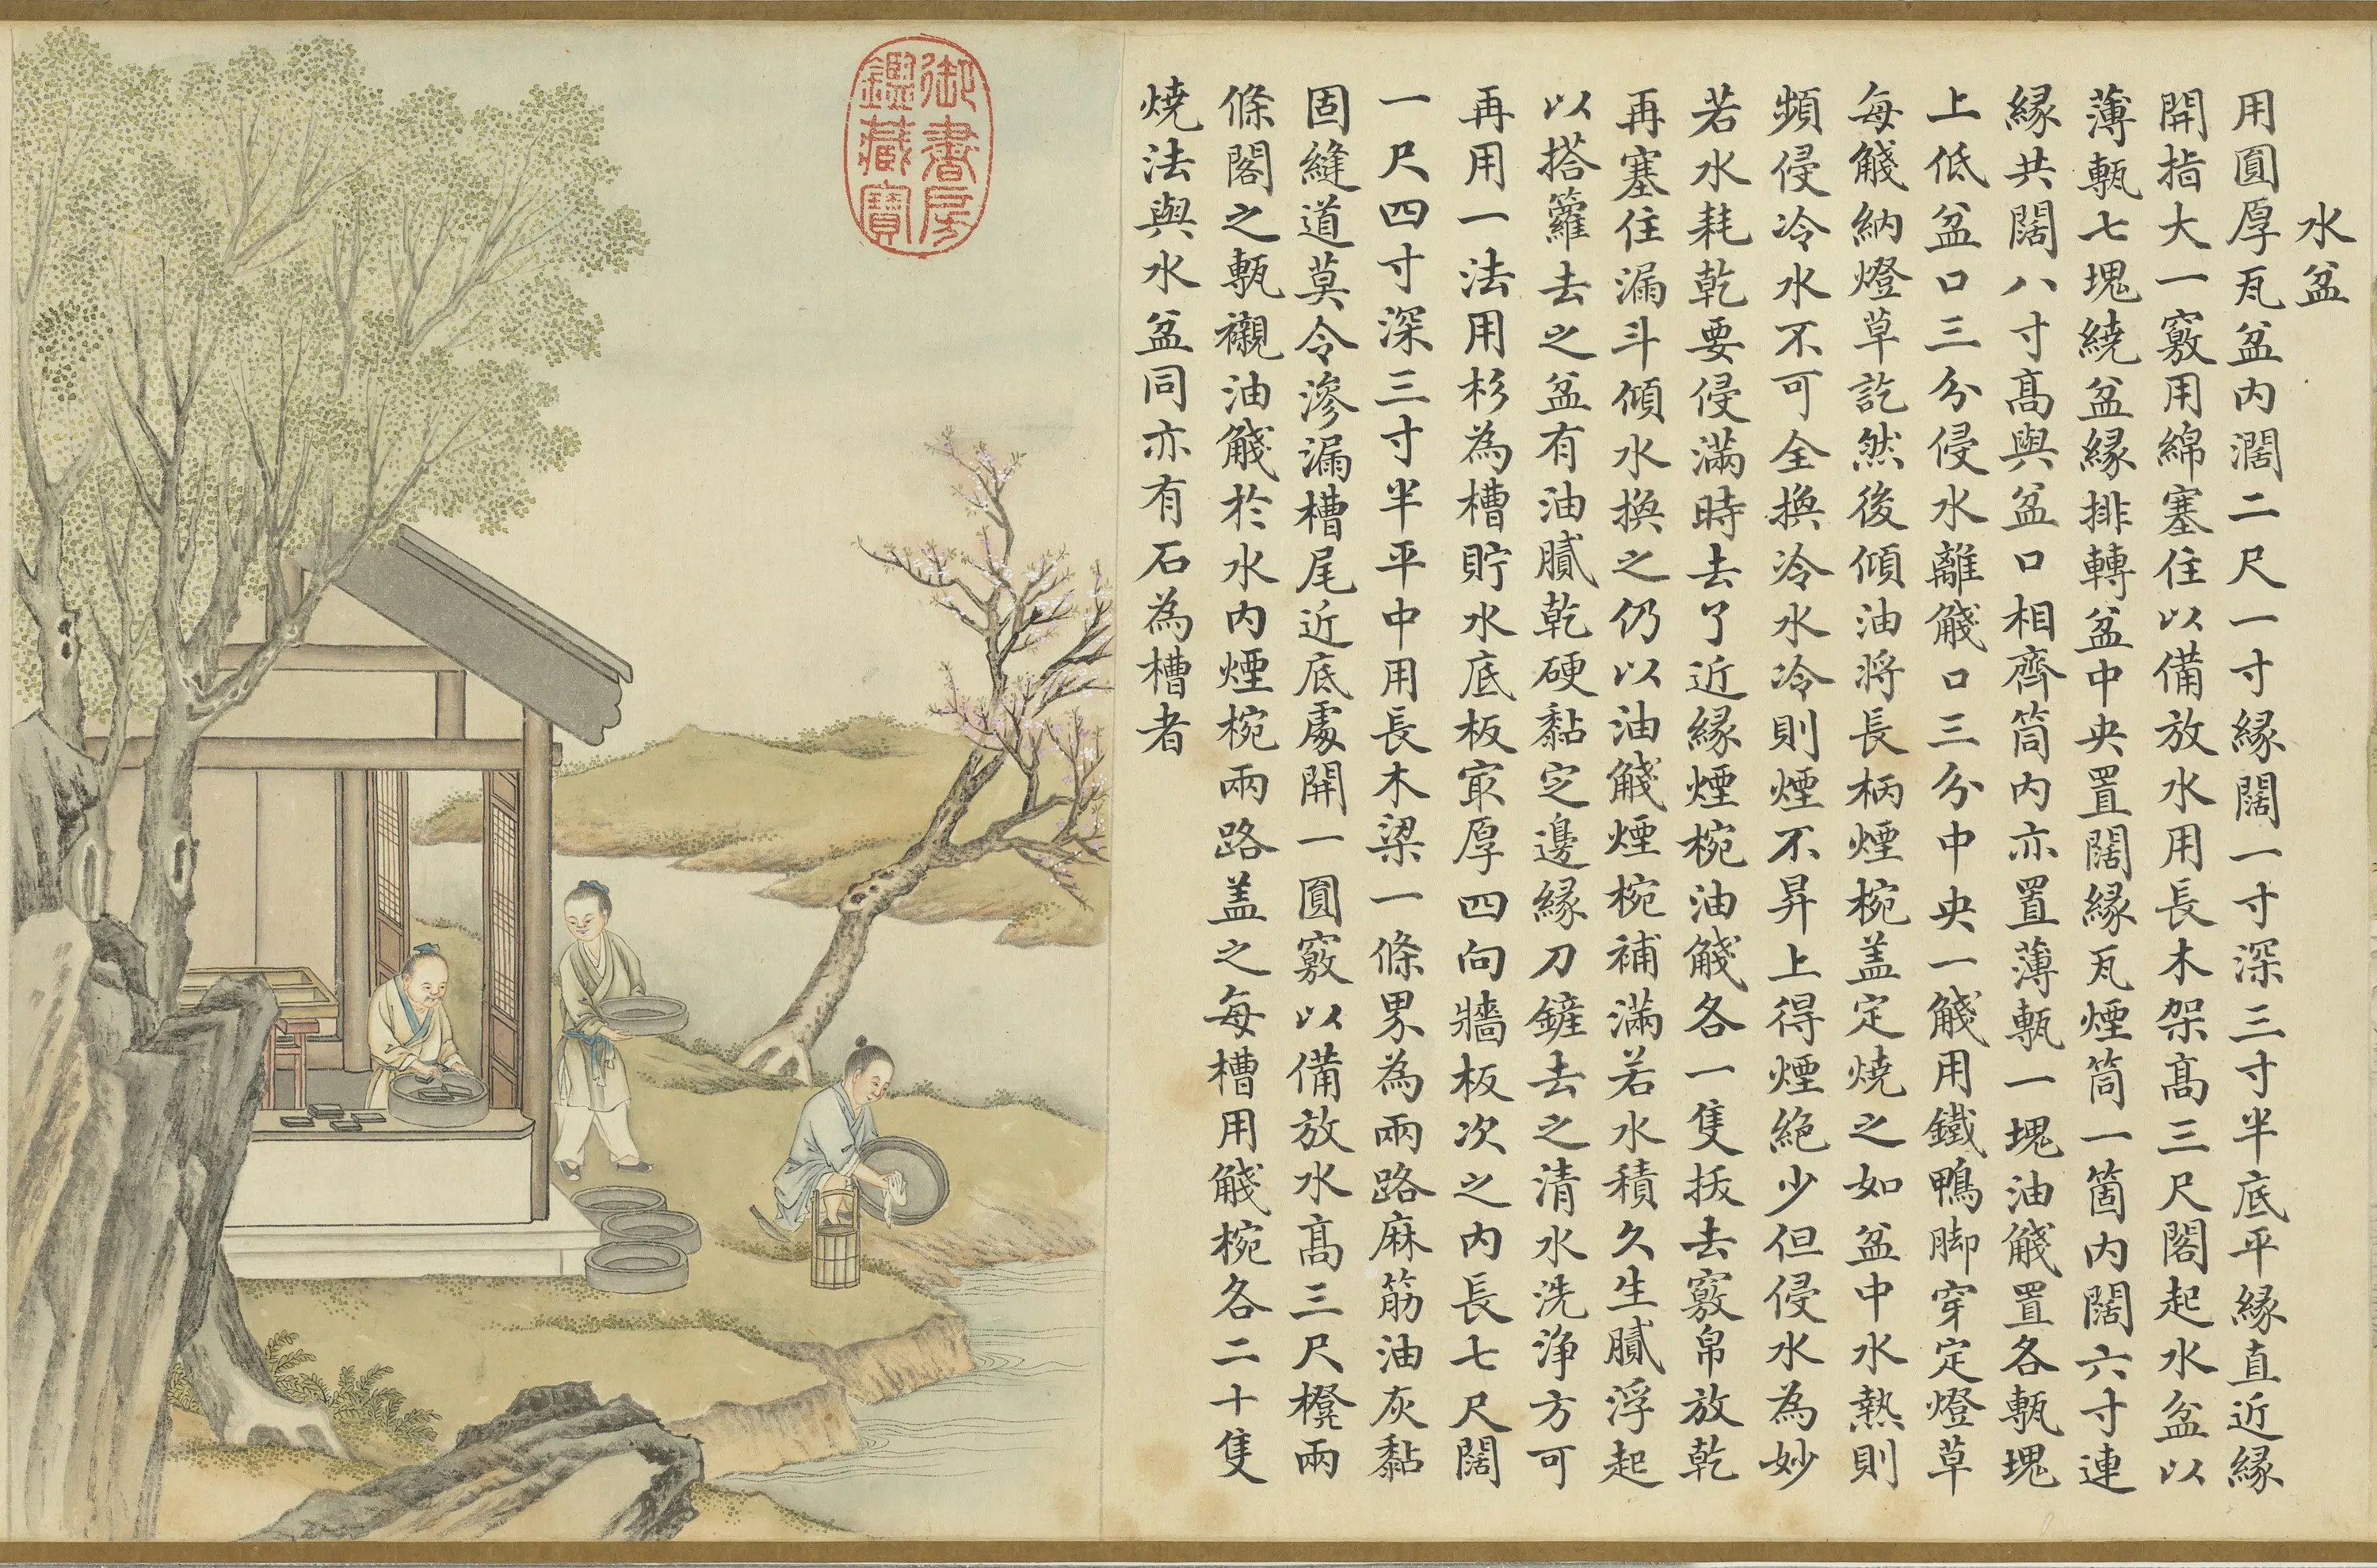 水盆
用圓厚瓦盆内濶二尺一寸縁闊一寸深三寸半底平縁直近縁
開指大一竅用綿塞住以備放水用長木架髙三尺閣起水盆以
薄甎七塊繞盆縁排轉盆中央置闊縁瓦煙筒一箇内闊六寸連
縁共闊八寸髙與盆口相齊筒内亦置薄甎一塊油㼙置各甎塊
上低盆口三分侵水離㼙口三分中央一㼙用鐵鴨脚穿定燈草
每㼙納燈草訖然後傾油將長柄煙椀盖定燒之如盆中水熱則
頻侵冷水不可全換冷水冷則煙不昇上得煙絶少但侵水為妙
若水耗乾要侵滿時去了近縁煙椀油㼙各一隻拔去竅帛放乾
再塞住漏斗傾水換之仍以油㼙煙椀補滿若水積久生膩浮起
以搭籮去之盆有油膩乾硬黏定邊縁刀鏟去之清水洗浄方可
再用一法用杉為槽貯水底板㝡厚四向牆板次之内長七尺闊
一尺四寸深三寸半平中用長木梁一條界為兩路麻筋油灰黏
固縫道莫令滲漏槽尾近底處開一圓竅以備放水髙三尺櫈兩
條閣之甎襯油㼙於水内煙椀兩路盖之每槽用㼙椀各二十隻
燒法與水盆同亦有石為槽者
御書房
鑑藏寶